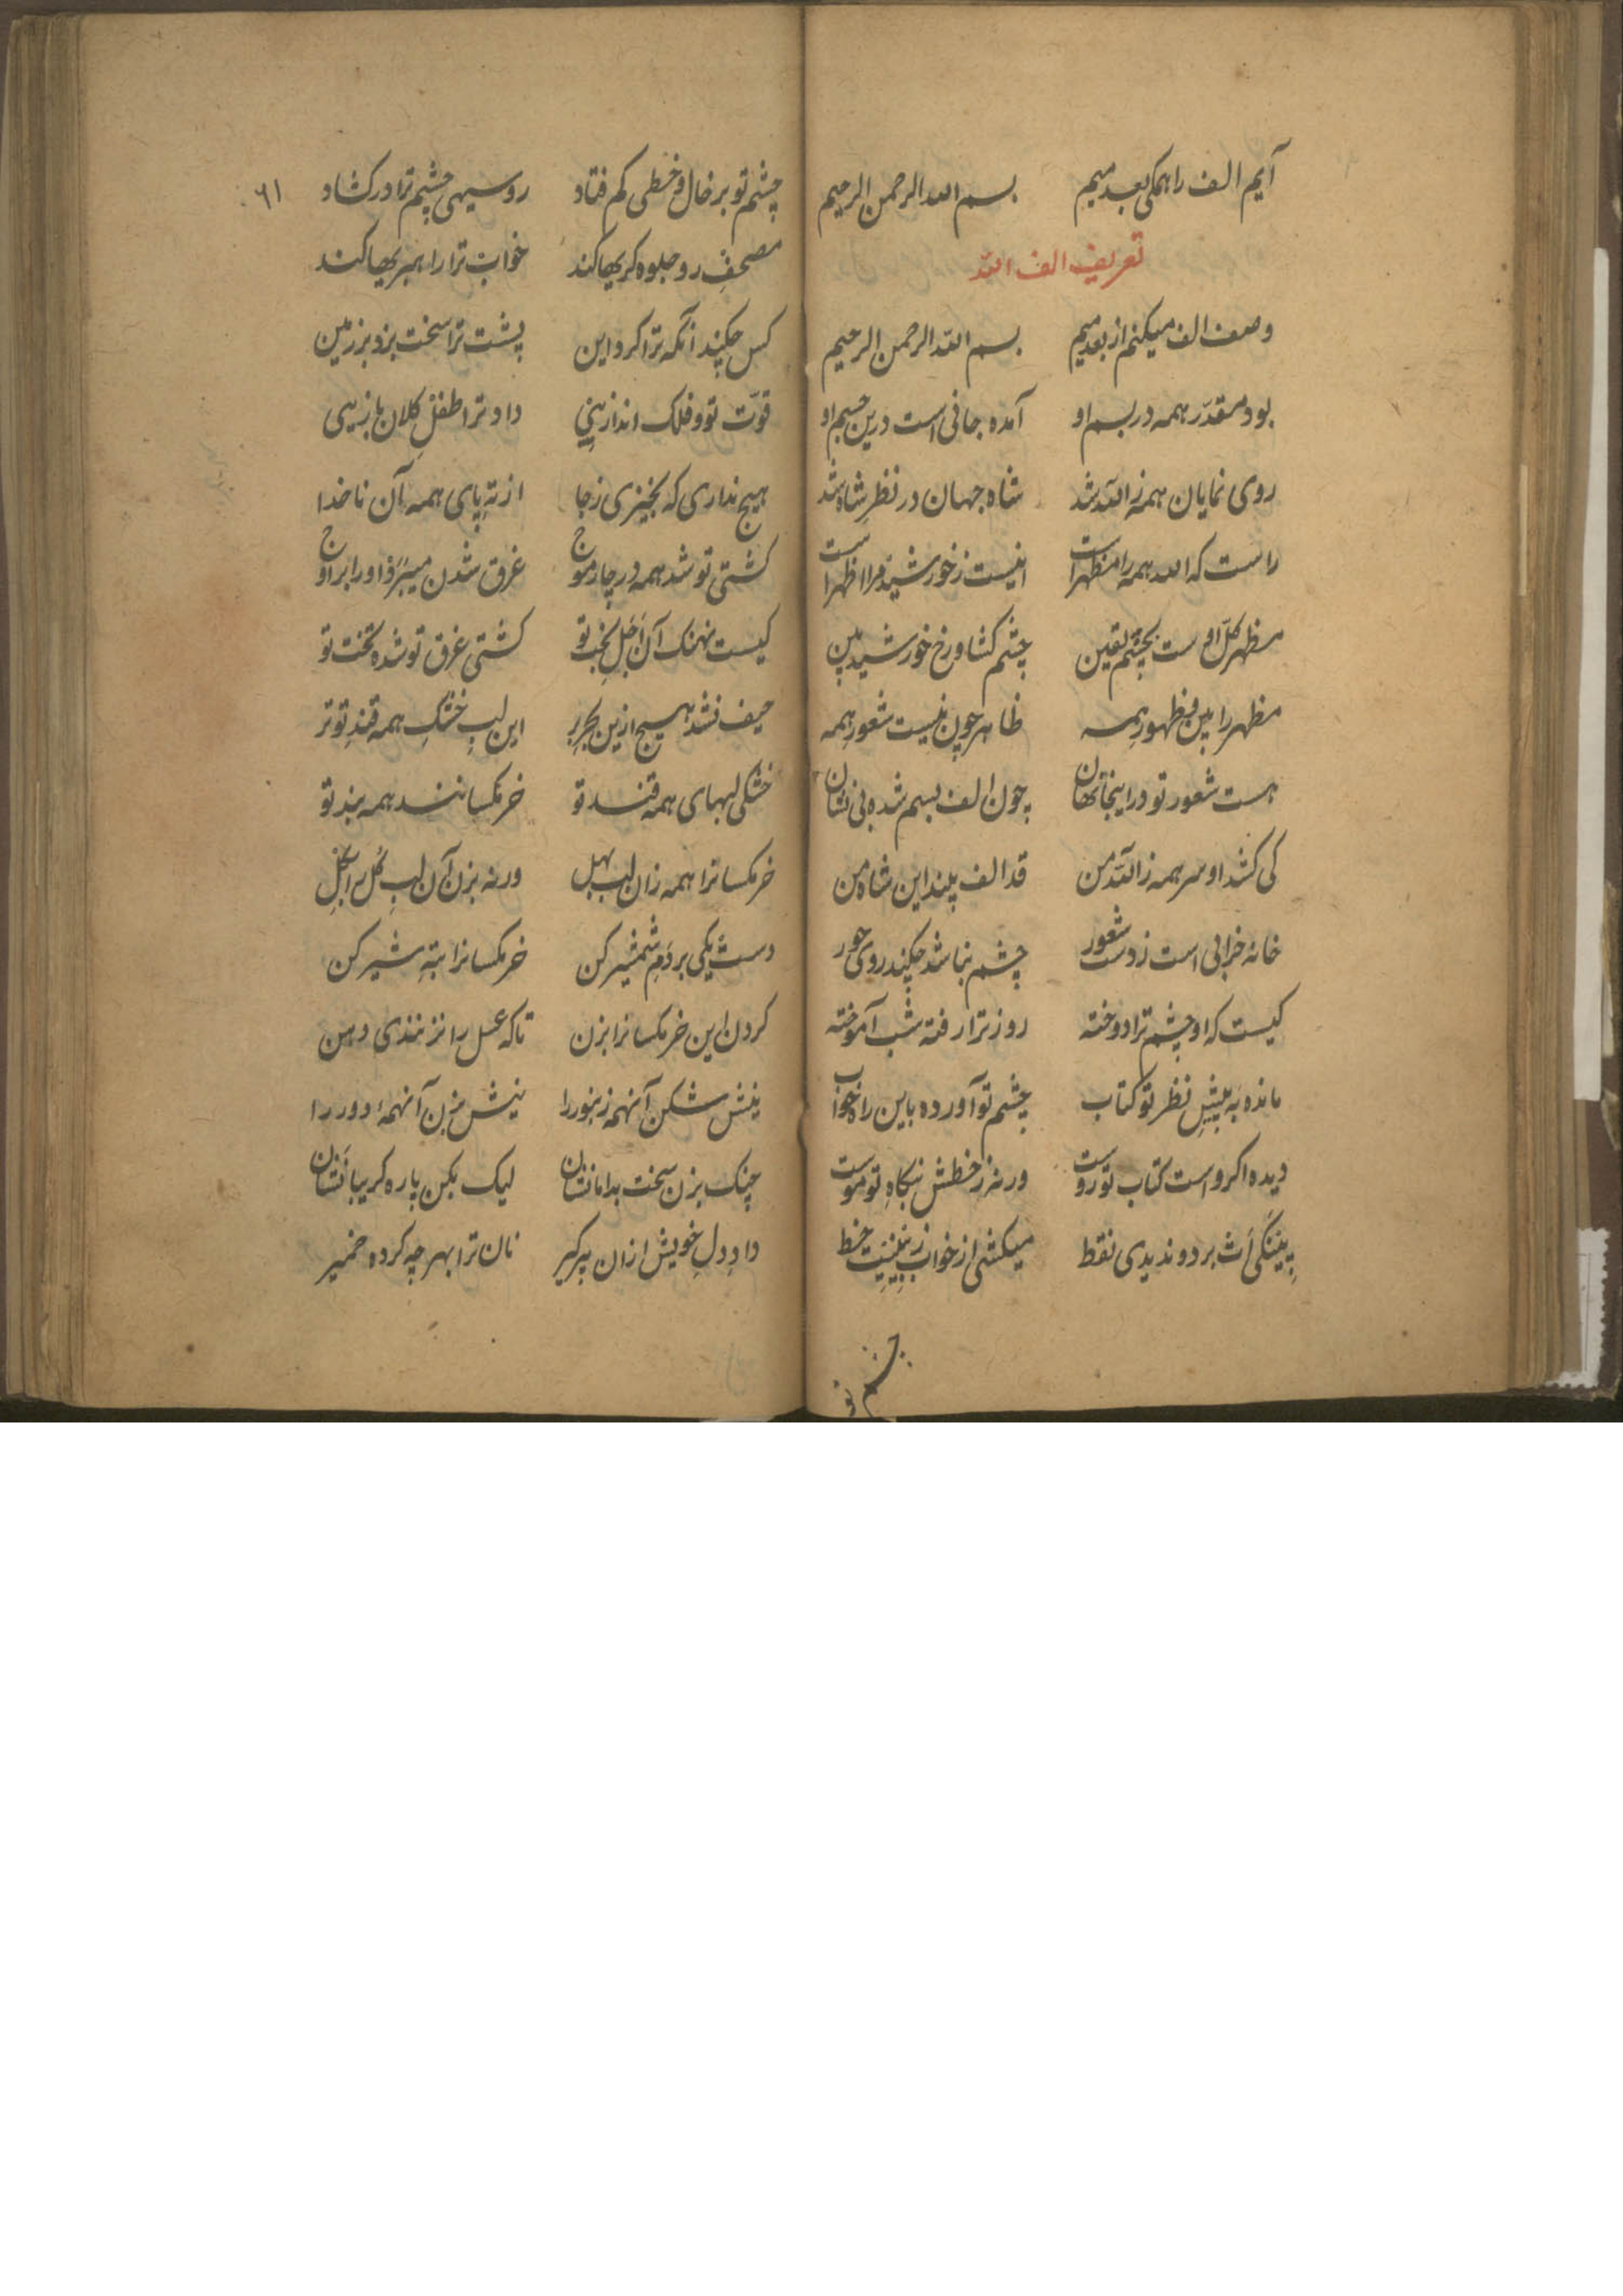 آیم الف را همکی بعد میم بسم الله الرحمن الرحیم
تعریف الف الله
وصف الف میکنم از بعد میم بسم الله الرحمن الرحیم
بود مقدر همه در بسم او آمده جانی است درین جسم او
روی نمایان همه ز الله شد شاه جهان در نظر شاه شد
راست که الله همه را مظهر است نیست ز خورشید مرا اظهر است
مظهر کل اوست بچشم یقین چشم کشا و رخ خورشید ببین
مظهر را بین ظهور همه ظاهر چون نیست شعور همه
هست شعور تو در اینجا نهان چون الف بسم شده بی نشان
کی کشد او سر همه ز الله من قد الف بیند این شاه من
خانه خرابی است ز دست شعور چشم نباشد چکند روی حور
کیست که او چشم ترا دوخته روز ترا رفته شب آموخته
مانده به پیش نظر تو کتاب چشم تو آورده باین راه خواب
دیده اکر واست کتاب تو روست ورنه ز خطش نکاه تو موست
بردو ندیدی نقط میکشی از خواب خط
چشم تو
٦١
چشم تو بر خال و خطی کم فتاد روسیهی چشم ترا در کشاد
مصحف رو جلوه کریها کند خواب ترا راهبریها کند
کس چکند آنکه ترا کرد این پشت ترا سخت بزد بر زمین
قوت تو و فلک انداز پی داد ترا طفل کلان بازیی
هیچ نداری که بخیزی ز جا از ته پای همه آن ناخدا
کشتی تو شد همه در چار موج غرق شدن میبرد او را بر اوج
کیست نهنک آن اجل بخت تو کشتی غرق تو شده تخت تو
حیف نشد هیچ ازین بحر بر این لب خشک همه قند تو تر
خشکی لبهای همه قند تو خرمکسانند همه بند تو
خرمکسانرا همه زان لب بهل ورنه بزن آن لب کل را بکل
دست یکی بر دم شمشیر کن خرمکسانرا بته شیر کن
کردن این خرمکسانرا بزن تاکه عسل را نزنندی دهن
نیش شکن آنهمه زنبور را نیش مزن آنهمه دور را
چنک بزن سخت بدامانشان لیک بکن پاره کریبانشان
داد دل خویش ازان پیر کیر نان ترا بهر چه کرده خمیر